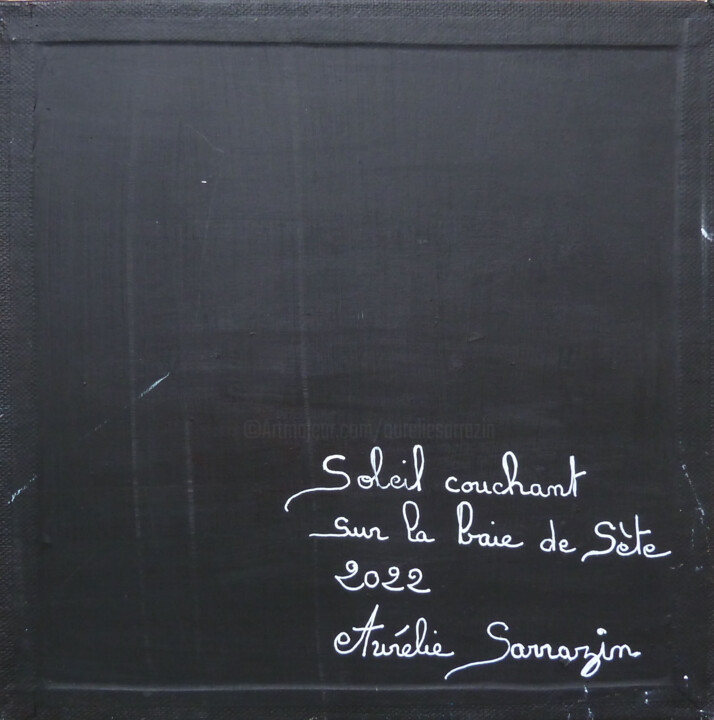 ©Artmajeur.com/aureliesarrazin
Soleil couchant
sur la baie de Sète
2022
Aurélie Sarrazin